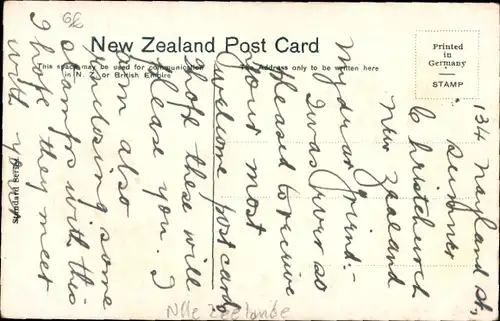 62
New Zealand Post Card
This space may be used for communication
in N. Z. or British Empire
The Address only to be written here
Printed in
Germany
STAMP
Standard Series
134 Nayland St,
Sumner
Christchurch
New Zealand
My dear friend:-
I was ever so
pleased to receive
your most
welcome post cards
hope these will
please you. I
am also
enclosing some
stamps with this
I hope they meet
with your
Nlle Zeelande